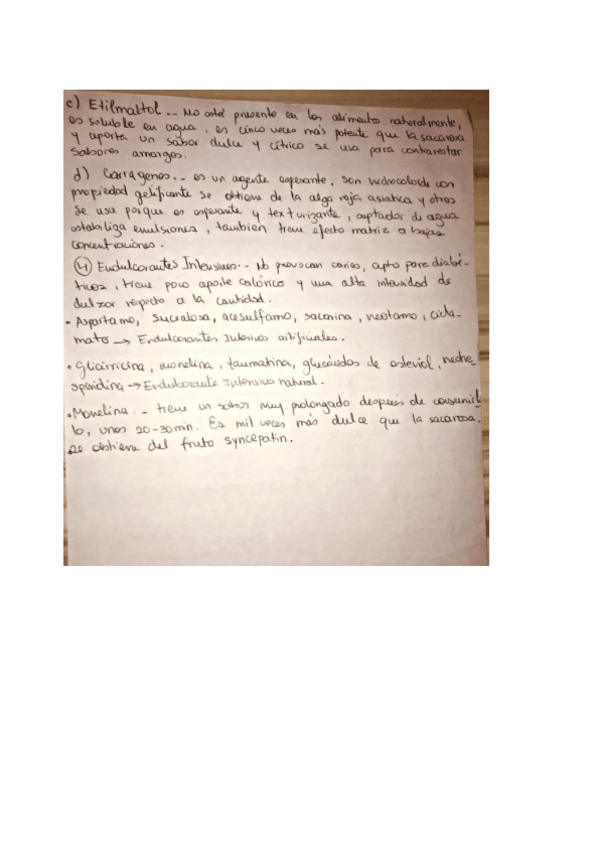 c) Etilmaltol.- No está presente en los alimentos naturalmente,
es soluble en agua, es cinco veces más potente que la sacarosa
y aporta un sabor dulce y cítrico se usa para contrarestar
sabores amargos.
d) Carragenos.- es un agente espesante, son hidrocoloide con
propiedad gelificante se obtiene de la alga roja asiatica y otros
se usa porque es espesante y texturizante, captador de agua
estabiliza emulsiones, tambien tiene efecto matriz a bajas
concentraciones.
④ Endulcorantes Intensivos.- No provocan caries, apto para diabé-
ticos, tiene poco aporte calórico y una alta intensidad de
dulzor respecto a la cantidad.
• Aspartamo, sucralosa, acesulfamo, sacarina, neotamo, cicla-
mato → Endulcorantes Intensivos artificiales.
• Glicirricina, monelina, taumatina, glucósidos de esteviol, neohe
speridina → Endulcorante Intensivo natural.
• Monelina.- tiene un sabor muy prolongado después de consumir
lo, unos 20-30 min. Es mil veces más dulce que la sacarosa.
se obtiene del fruto syncepatin.